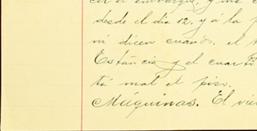 en el embarque, y me e
desde el día 12. y á la p
ni dicen cuando, el t
Estáncia y el cuarto
tá mal el piso.
Máquinas. El vie